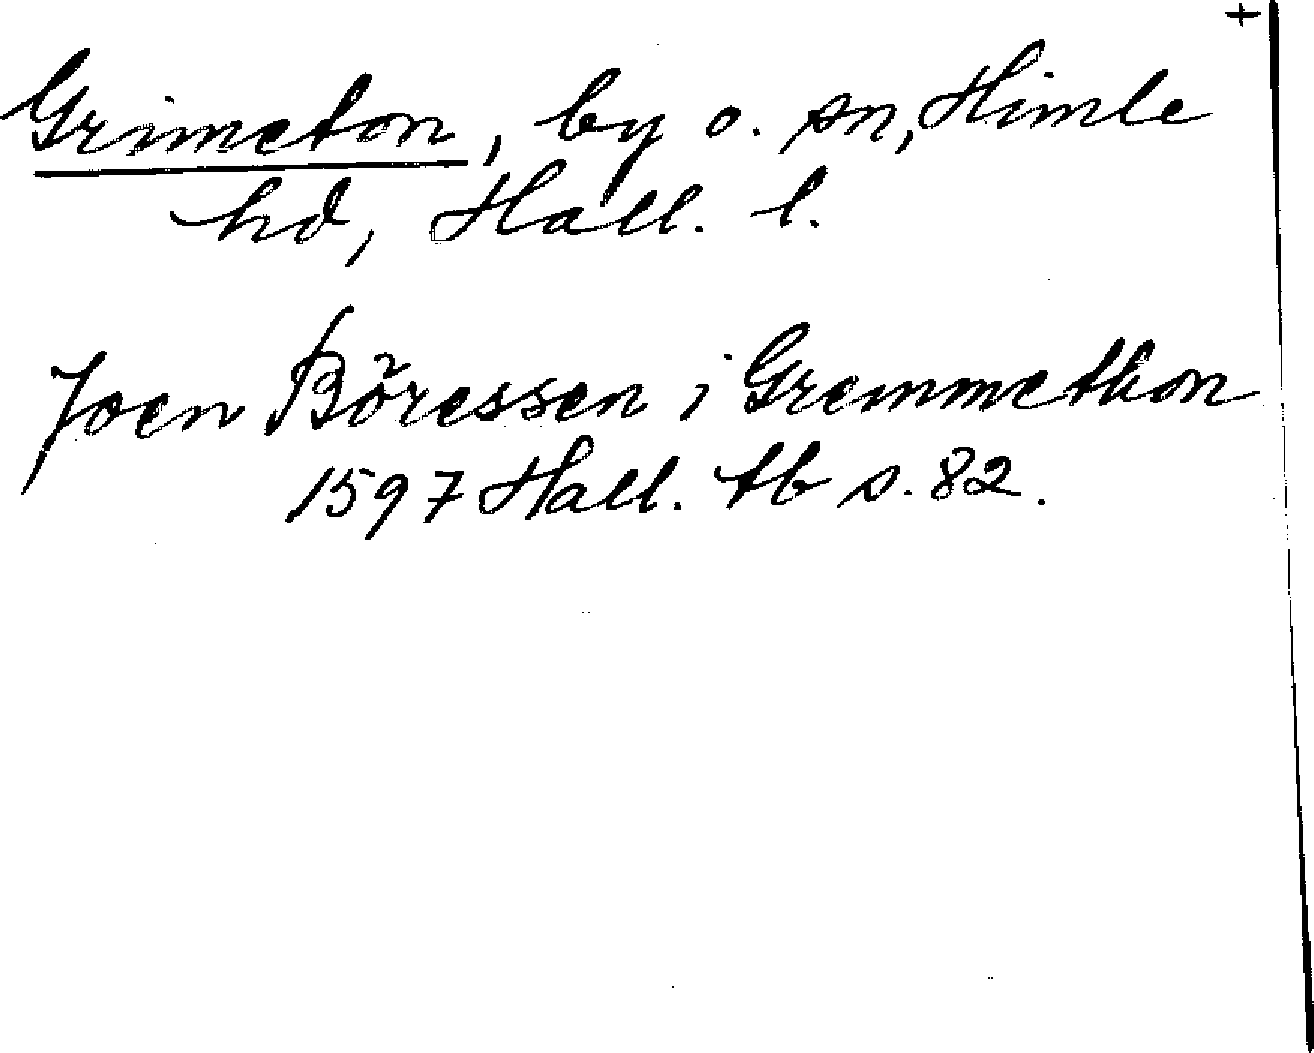 +
Grimeton, by o. sn, Himle
hd, Hall. l.
Joen Böressen i Gremmethon
1597 Hall. tb s. 82.